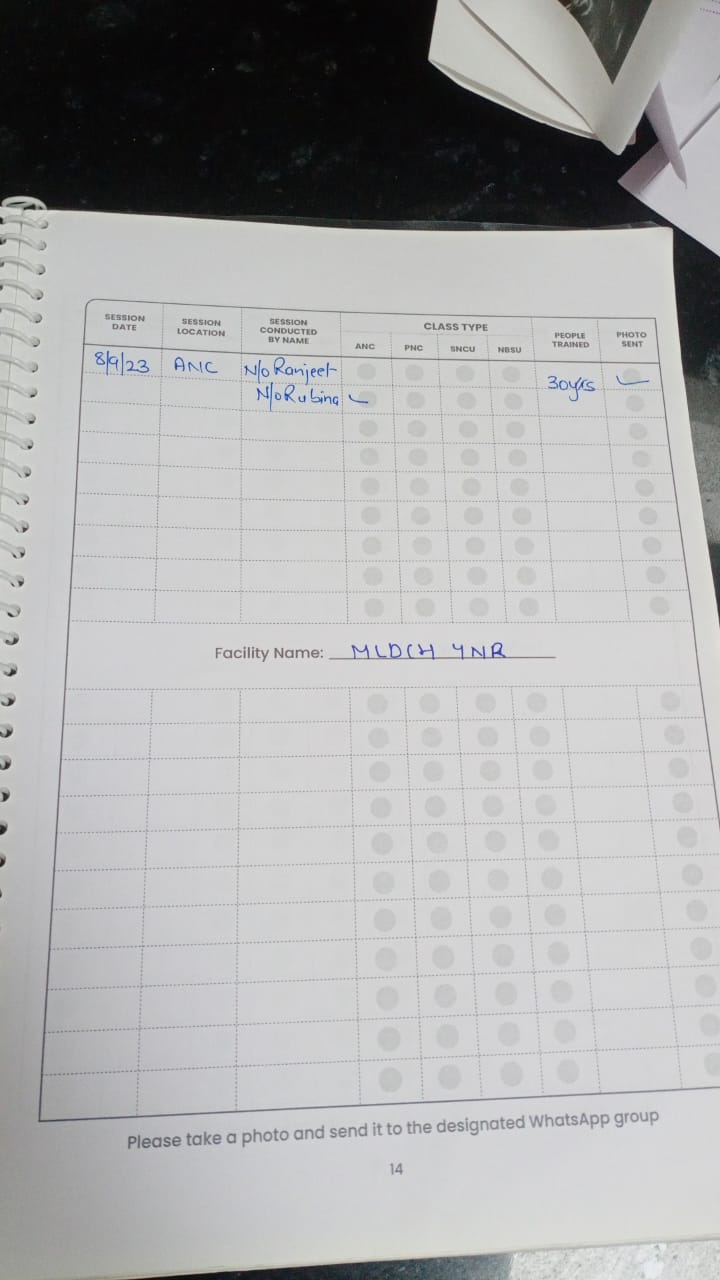 SESSION DATE SESSION LOCATION SESSION CONDUCTED BY NAME CLASS TYPE PEOPLE TRAINED PHOTO SENT
ANC PNC SNCU NBSU
8/9/23 ANC N/o Ranjeet
N/o Rubina 30yrs
Facility Name: MLDCH YNR
Please take a photo and send it to the designated WhatsApp group
14